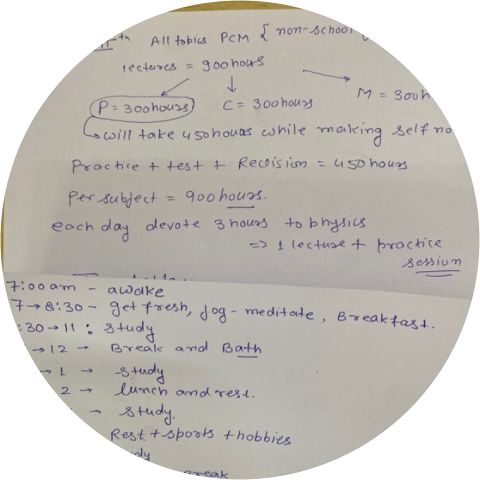 th All topics PCM { non-school
lectures = 900hours
P = 300hours C = 300hours M = 300h
will take 450hours while making self no
Practice + test + Revision = 450hours
Per subject = 900hours.
each day devote 3hours to physics
=> 1 lecture + practice
session
7:00am - awake
7→8:30 - get fresh, Jog - meditate, Breakfast.
:30→11 : study
→12 → Break and Bath
→1 → study
2 → lunch and rest.
→ study.
Rest + sports + hobbies
dy
break